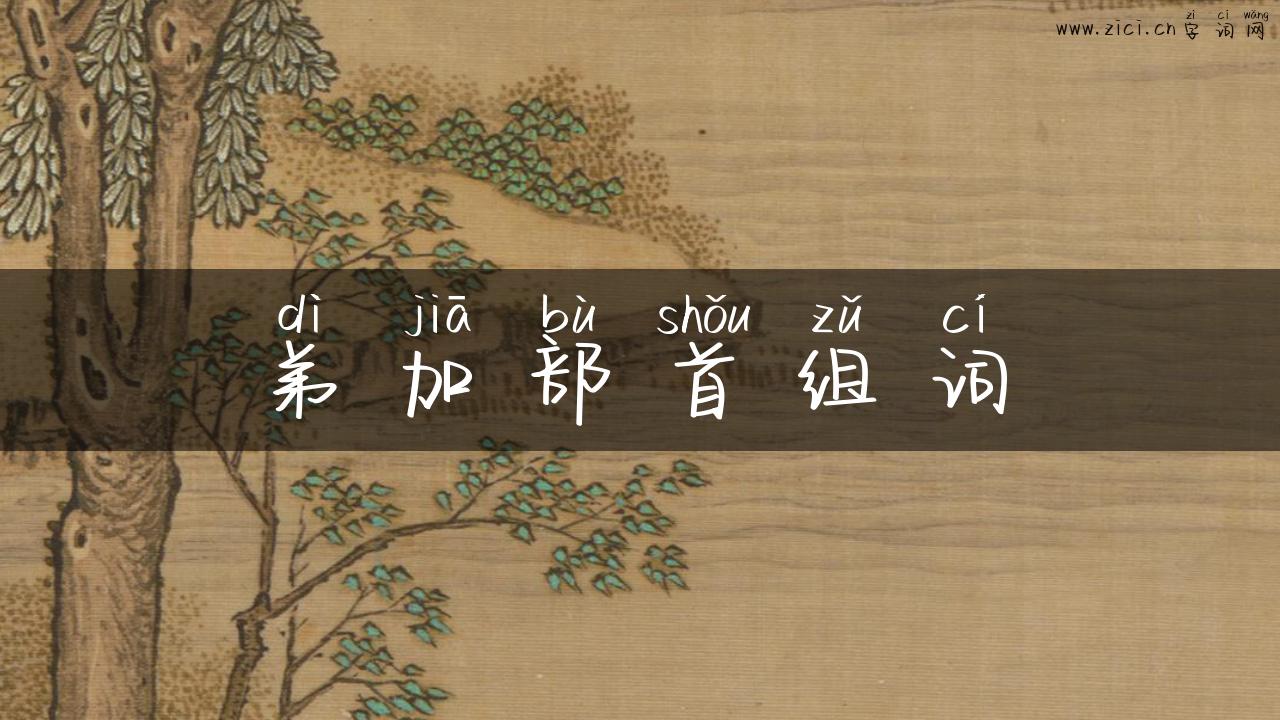 zì cí wǎng
www.zici.cn 字词网
dì jiā bù shǒu zǔ cí
弟加部首组词